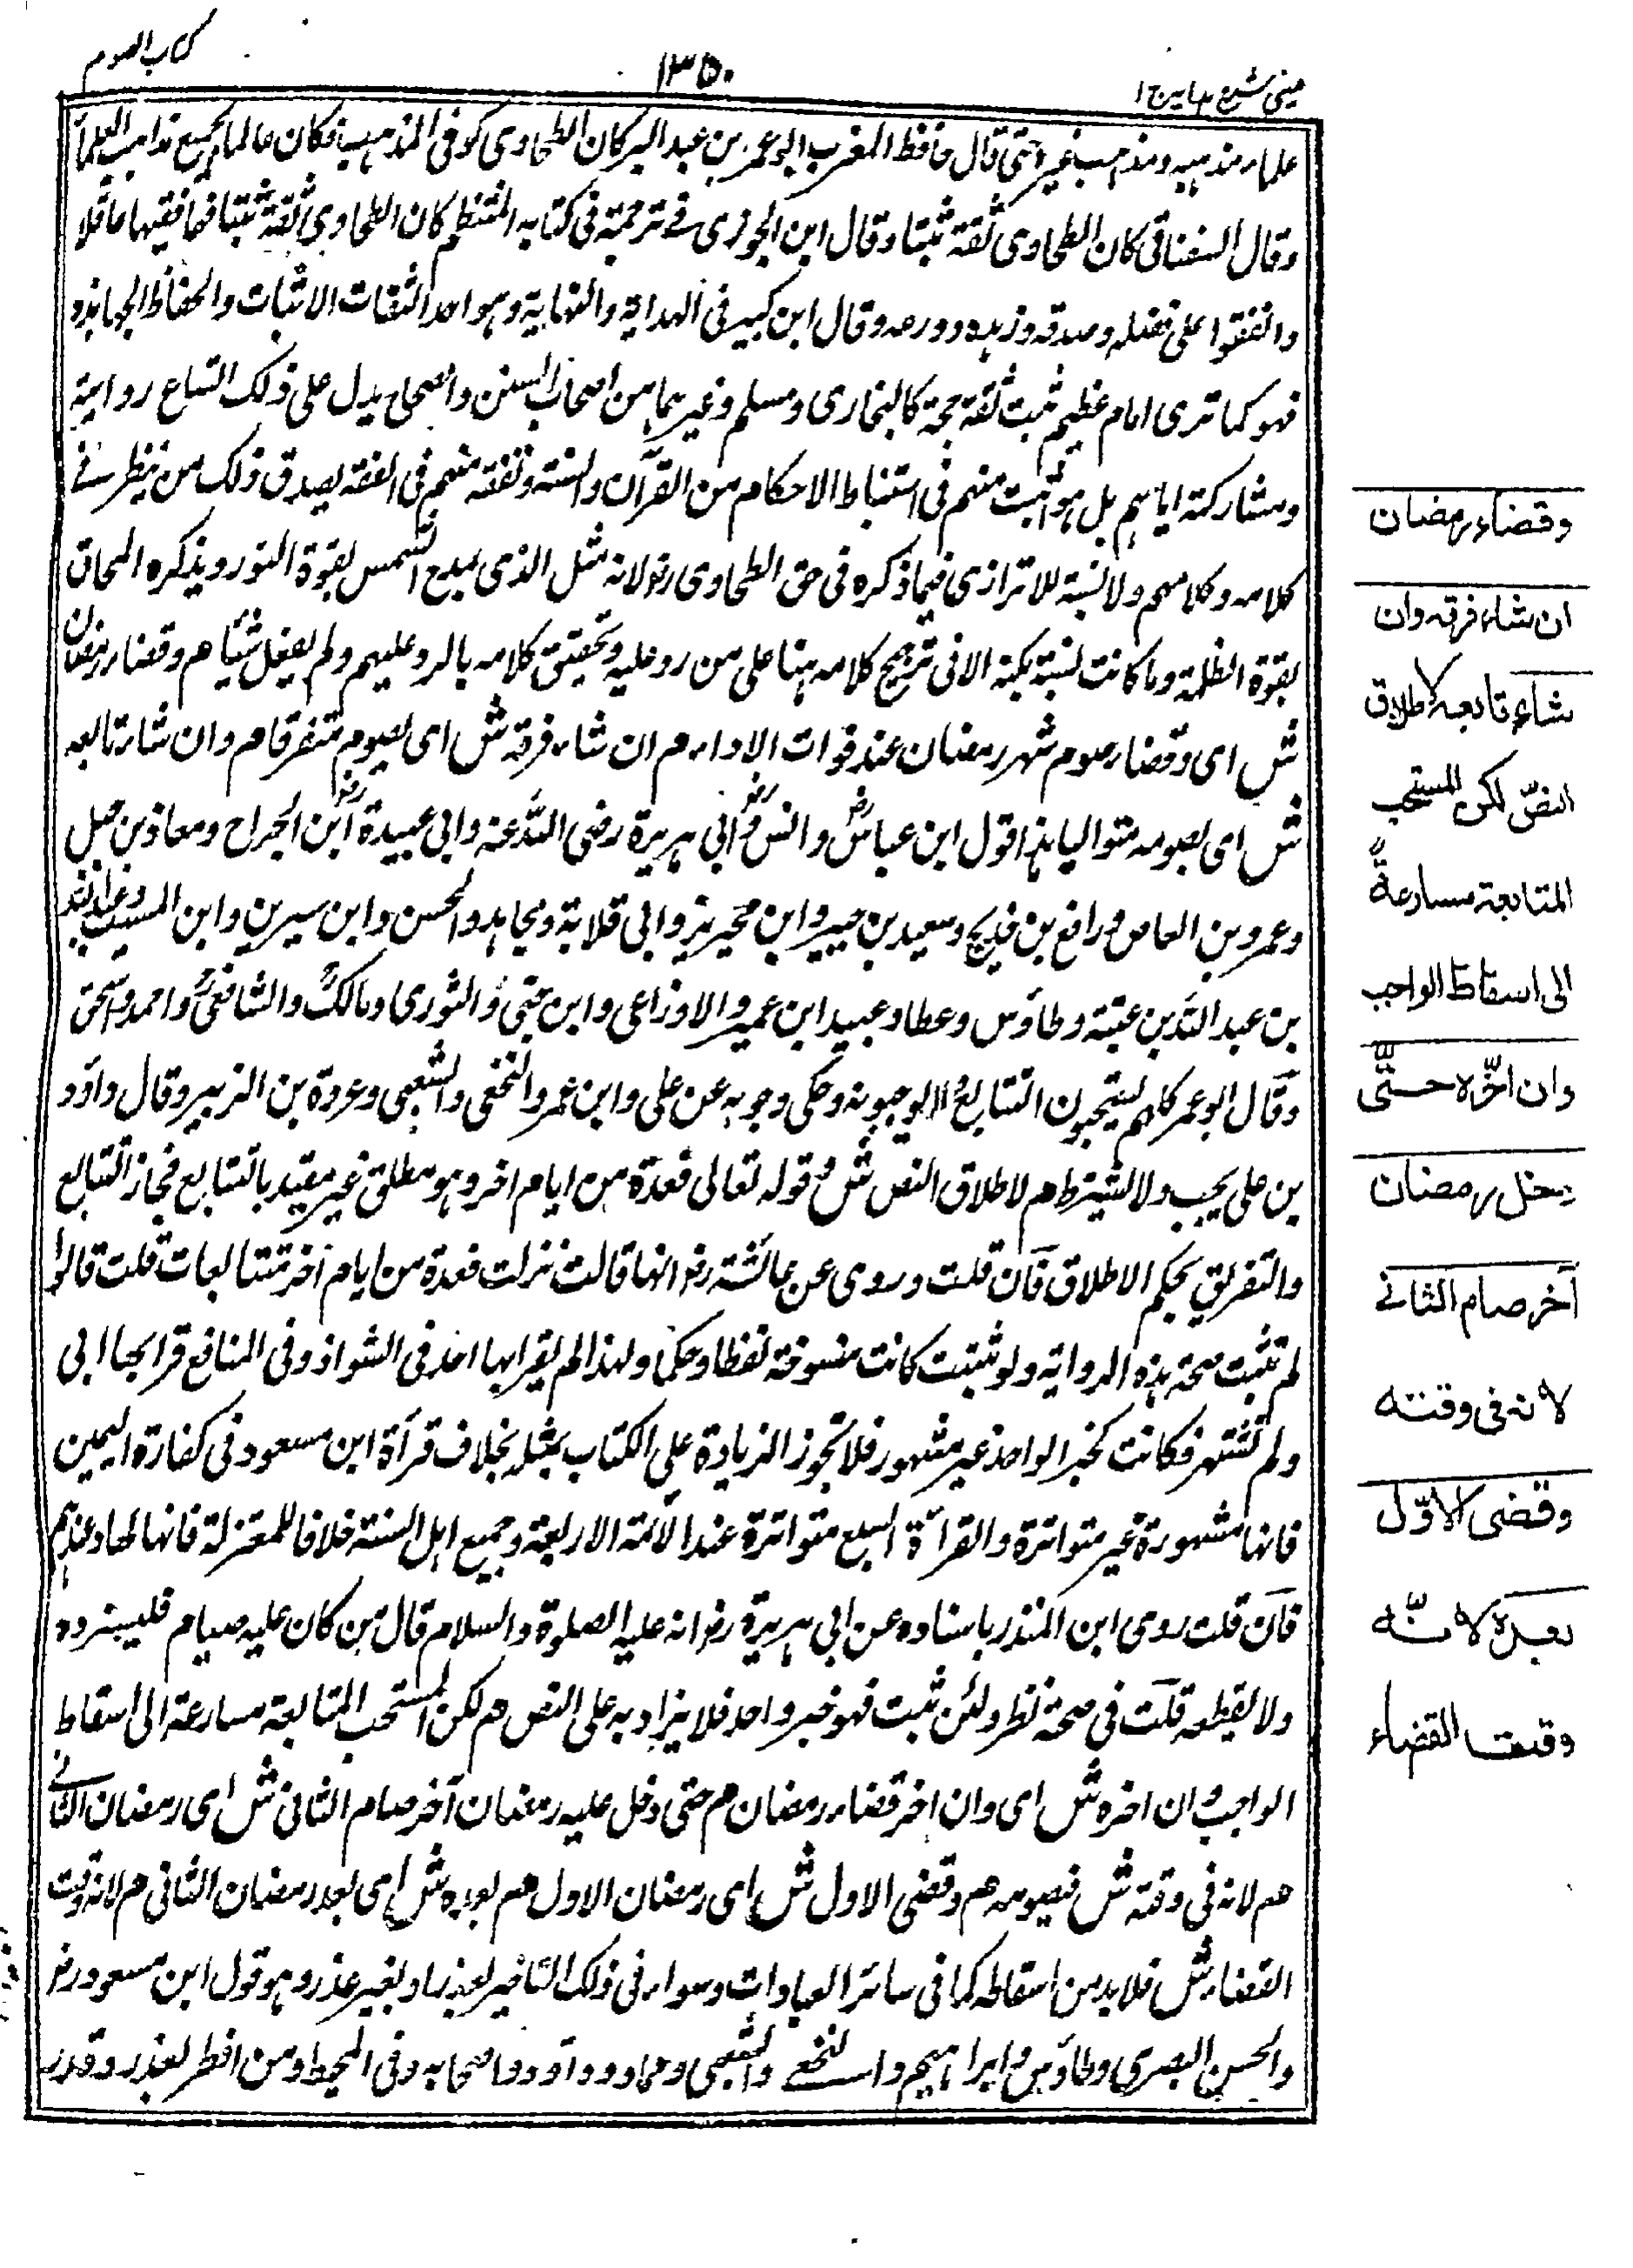 عینی شرح ہدایہ ج ۱
۱۳۵۰
کتاب الصوم
علماء مذہبہ ومذہب غیرہ حتی قال حافظ المغرب ابو عمر بن عبد البر کان الطحاوی کوفی المذہب وکان عالما بجمیع مذاہب العلماء
وقال السغناقی کان الطحاوی ثقة ثبتا وقال ابن الجوزی فی ترجمتہ فی کتابہ المنتظم کان الطحاوی ثقة ثبتا فہما فقیہا عاقلا
واتفقوا علی فضلہ وصدقہ وزہدہ وورعہ وقال ابن کثیر فی الہدایة والنہایة وہو احد الثقات الاثبات والحفاظ الجہابذہ
فہو کما تری امام عظیم ثبت ثقة حجة کالبخاری ومسلم وغیرہما من اصحاب السنن والصحاح یدل علی ذلک اتساع روایتہ
ومشارکتہ ایاہم بل ہو اثبت منہم فی استنباط الاحکام من القرآن والسنة وتفقہ منہم فی الفقہ یصدق ذلک من ینظر فی
کلامہ وکلامہم ولا نسبة للاترازی فیما ذکرہ فی حق الطحاوی رض لانہ مثل الذی یمدح الشمس بقوة النور ویذکرہ المحاق
بقوة الظلمة وما کانت نسبتہ نکتة الا فی ترجیح کلامہ ہنا علی من رد علیہ وتحقیق کلامہ بالرد علیہم ولم یفعل شیئا م وقضاء رمضان
ش ای وقضاء صوم شہر رمضان عند فوات الاداء م ان شاء فرقہ ش ای یصوم متفرقا م وان شاء تابعہ
ش ای یصومہ متوالیا ہذا قول ابن عباس رض وانس رض وابی ہریرة رضی اللہ عنہ وابی عبیدة ابن الجراح ومعاذ بن جبل
وعمرو بن العاص ورافع بن خدیج وسعید بن جبیر وابن محیریز وابی قلابة ومجاہد والحسن وابن سیرین وابن المسیب وعبید اللہ
بن عبد اللہ بن عتبة وطاؤس وعطا وعبید ابن عمیر والاوزاعی وابن حیی والثوری ومالک والشافعی واحمد واسحق
وقال ابو عمر کلہم یستحبون التتابع ولا یوجبونہ وحکی وجوبہ عن علی وابن عمر والنخعی والشعبی وعروة بن الزبیر وقال داؤد
بن علی یجب ولا یشترط م لاطلاق النص ش وہو قولہ تعالی فعدة من ایام اخر وہو مطلق غیر مقید بالتتابع فجاز التتابع
والتفریق بحکم الاطلاق فان قلت وروی عن عائشة رض انہا قالت نزلت فعدة من ایام اخر متتابعات قلت قالوا
لم تثبت صحة ہذہ الروایة ولو ثبتت کانت منسوخة لفظا وحکما ولہذا لم یقرا بہا احد فی الشواذ وفی المنافع قرا بہا ابی
ولم تشتہر فکانت کخبر الواحد غیر مشہور فلا تجوز الزیادة علی الکتاب بمثلہ بخلاف قرأة ابن مسعود فی کفارة الیمین
فانہا مشہورة غیر متواترة والقراة السبع متواترة عند الائمة الاربعة وجمیع اہل السنة خلافا للمعتزلة فانہا احاد عندہم
فان قلت روی ابن المنذر باسنادہ عن ابی ہریرة رض انہ علیہ الصلوة والسلام قال من کان علیہ صیام فلیسردہ
ولا یقطعہ قلت فی صحتہ نظر ولئن ثبت فہو خبر واحد فلا یزاد بہ علی النص م لکن المستحب المتابعة مسارعة الی اسقاط
الواجب وان اخرہ ش ای وان اخر قضاء رمضان م حتی دخل علیہ رمضان آخر صام الثانی ش ای رمضان الثانی
م لانہ فی وقتہ ش فیصومہ م وقضی الاول ش ای رمضان الاول م بعدہ ش ای بعد رمضان الثانی م لانہ وقت
القضاء ش فلا بد من اسقاطہ کما فی سائر العبادات وسواء فی ذلک التاخیر بعذر او بغیر عذر وہو قول ابن مسعود رض
والحسن البصری وطاؤس وابراہیم والنخعی والشعبی وحماد وداؤد واصحابہ وفی المحیط ومن افطر بعذر وقدر
وقضاء رمضان
ان شاء فرقہ وان
شاء تابعہ لاطلاق
النصّ لکن المستحب
المتابعة مسارعةً
الی اسقاط الواجب
وان اخّرہ حتّی
دخل رمضان
آخر صام الثانی
لانہ فی وقتہ
وقضی الاوّل
بعدہ لانّہ
وقت القضاء